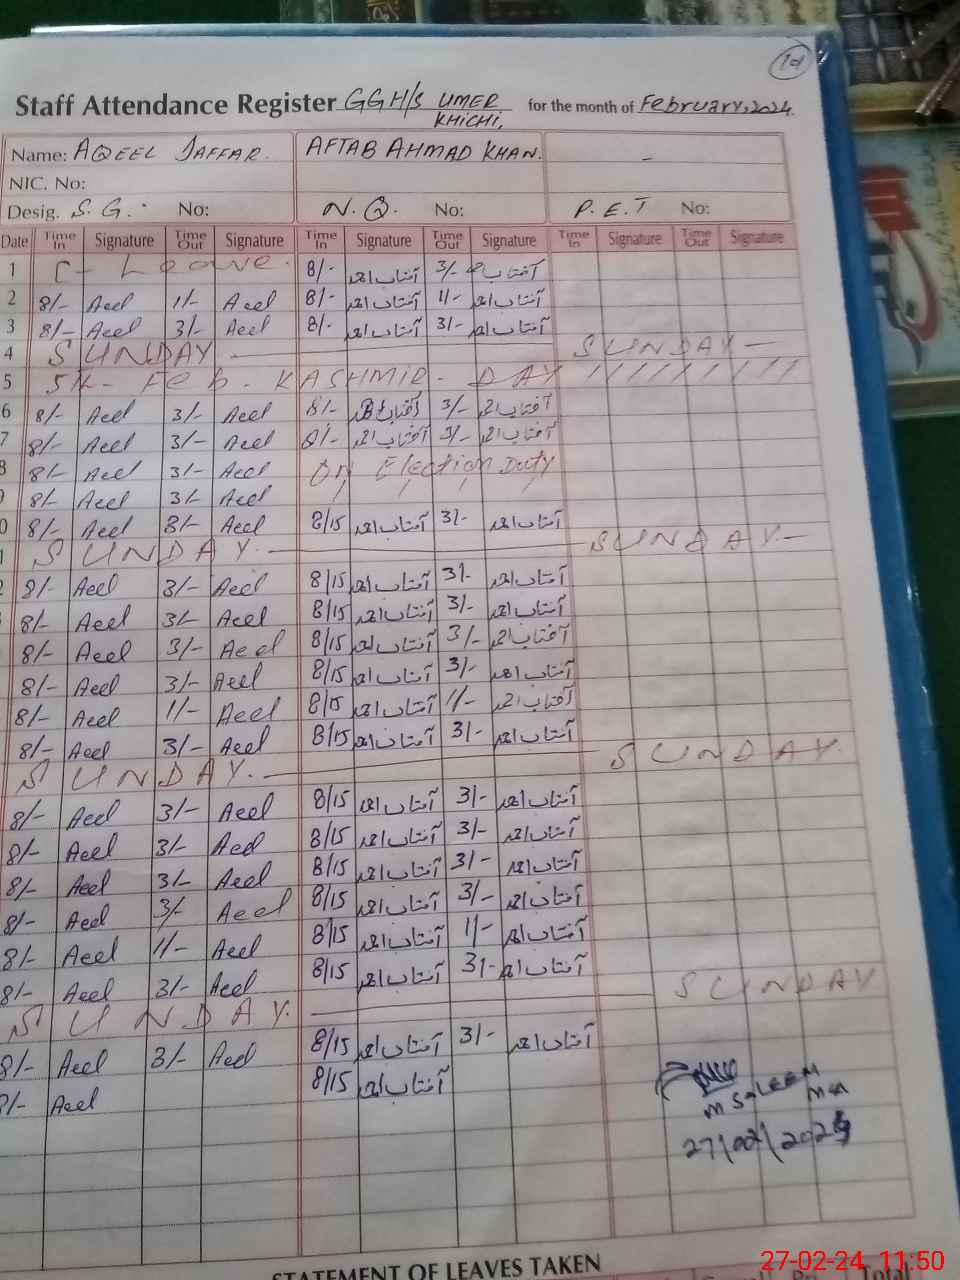 10
Staff Attendance Register GGH/S UMER KHICHI, for the month of February, 2024.
Name: AQEEL JAFFAR. AFTAB AHMAD KHAN. -
NIC. No:
Desig. S.G. No: N.Q. No: P.E.T No:
Date Time In Signature Time Out Signature Time In Signature Time Out Signature Time In Signature Time Out Signature
1 C- Leave. 8/- آفتاب احمد 3/- آفتاب احمد
2 8/- Aeel 1/- Aeel 8/- آفتاب احمد 1/- آفتاب احمد
3 8/- Aeel 3/- Aeel 8/- آفتاب احمد 3/- آفتاب احمد
4 SUNDAY - SUNDAY -
5 5th- Feb- KASHMIR- DAY / / / / / / / / / /
6 8/- Aeel 3/- Aeel 8/- آفتاب احمد 3/- آفتاب احمد
7 8/- Aeel 3/- Aeel 8/- آفتاب احمد 3/- آفتاب احمد
8 8/- Aeel 3/- Aeel On Election Duty
8/- Aeel 3/- Aeel / / / /
0 8/- Aeel 3/- Aeel 8/15 آفتاب احمد 3/- آفتاب احمد
1 SUNDAY. - SUNDAY. -
2 8/- Aeel 3/- Aeel 8/15 آفتاب احمد 3/- آفتاب احمد
8/- Aeel 3/- Aeel 8/15 آفتاب احمد 3/- آفتاب احمد
8/- Aeel 3/- Aeel 8/15 آفتاب احمد 3/- آفتاب احمد
8/- Aeel 3/- Aeel 8/15 آفتاب احمد 3/- آفتاب احمد
8/- Aeel 1/- Aeel 8/15 آفتاب احمد 1/- آفتاب احمد
8/- Aeel 3/- Aeel 8/15 آفتاب احمد 3/- آفتاب احمد
SUNDAY. - SUNDAY.
8/- Aeel 3/- Aeel 8/15 آفتاب احمد 3/- آفتاب احمد
8/- Aeel 3/- Aeel 8/15 آفتاب احمد 3/- آفتاب احمد
8/- Aeel 3/- Aeel 8/15 آفتاب احمد 3/- آفتاب احمد
8/- Aeel 3/- Aeel 8/15 آفتاب احمد 3/- آفتاب احمد
8/- Aeel 1/- Aeel 8/15 آفتاب احمد 1/- آفتاب احمد
8/- Aeel 3/- Aeel 8/15 آفتاب احمد 3/- آفتاب احمد
SUNDAY. - SUNDAY
8/- Aeel 3/- Aeel 8/15 آفتاب احمد 3/- آفتاب احمد
8/- Aeel 8/15 آفتاب احمد
M SALEEM
27/02/2024
STATEMENT OF LEAVES TAKEN
27-02-24 11:50